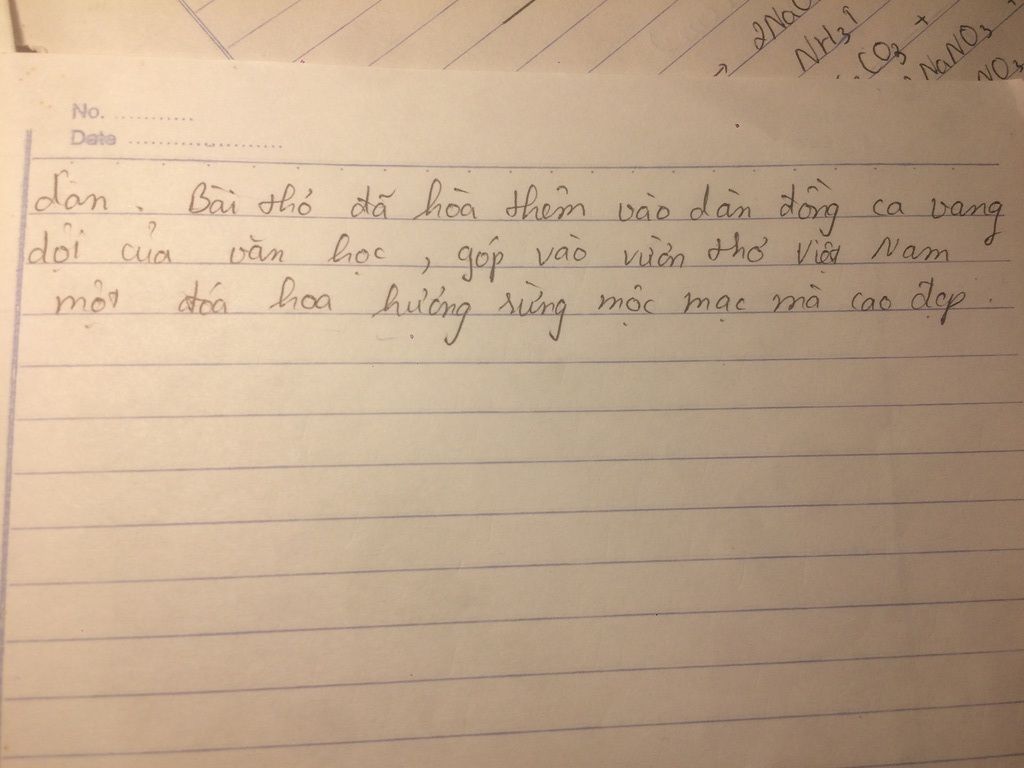 2NaC
NH3↑
CO3 +
NaNO3
NO3
No. ...........
Date ......................
dân. Bài thơ đã hòa thêm vào dàn đồng ca vang
dội của văn học, góp vào vườn thơ Việt Nam
một đóa hoa hương rừng mộc mạc mà cao đẹp.